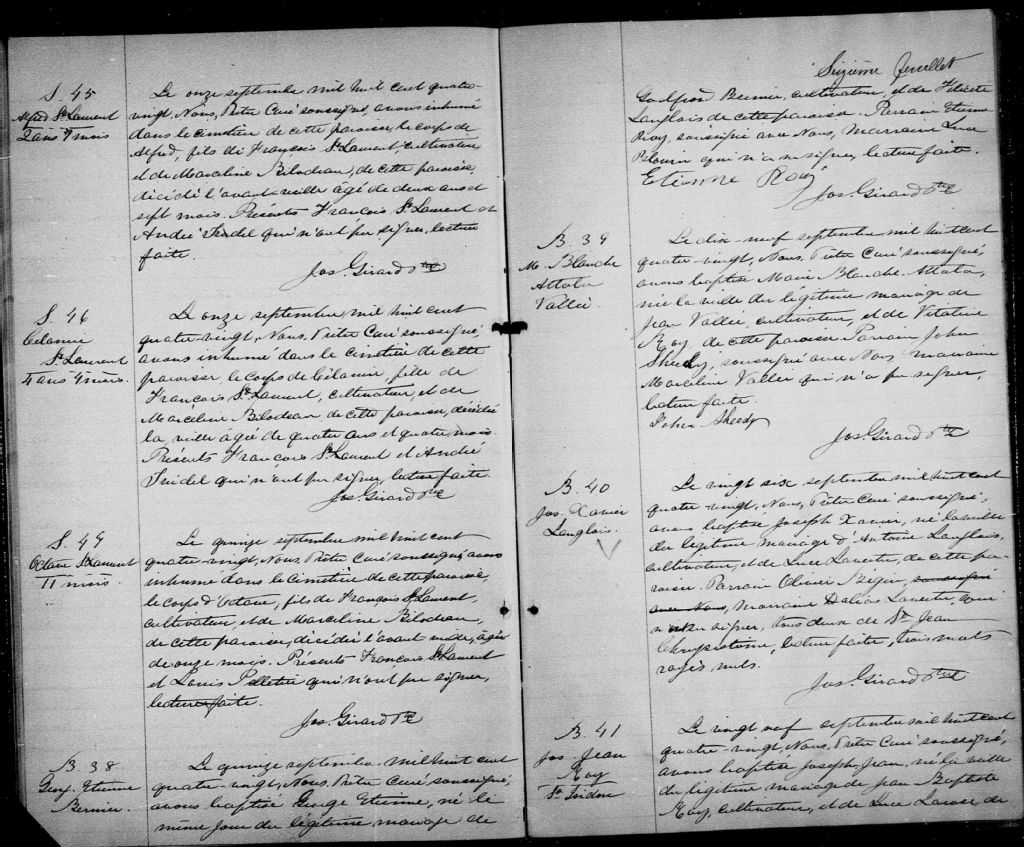 S. 45
Alfred St Laurent
2 ans 7 mois
Le onze septembre mil huit cent quatre-
vingt, Nous, Prêtre Curé soussigné, avons inhumé
dans le cimetière de cette paroisse, le corps de
Alfred, fils de François St Laurent cultivateur
et de Marceline Bilodeau, de cette paroisse,
décédé l'avant-veille agé de deux ans et
sept mois. Présents François St Laurent et
André Trudel qui n'ont pu signer, lecture
faite.
Jos. Girard Ptre
S. 46
Célanie
St Laurent
4 ans 4 mois.
Le onze septembre mil huit cent
quatre-vingt, Nous, Prêtre Curé soussigné
avons inhumé dans le cimetière de cette
paroisse, le corps de Célanie, fille de
François St Laurent, cultivateur, et de
Marceline Bilodeau de cette paroisse, décédée
la veille agée de quatre ans et quatre mois.
Présents François St Laurent et André
Trudel qui n'ont pu signer, lecture faite.
Jos. Girard Ptre
S. 47
Octave St Laurent
11 mois.
Le quinze septembre mil huit cent
quatre-vingt, Nous Prêtre Curé soussigné avons
inhumé dans le cimetière de cette paroisse,
le corps d'Octave, fils de François St Laurent,
cultivateur, et de Marceline Bilodeau,
de cette paroisse, décédé l'avant veille, agé
de onze mois. Présents François St Laurent
et Louis Pelletier qui n'ont pu signer,
lecture faite.
Jos. Girard Ptre
B. 38
Geo. Etienne
Bernier
Le quinze septembre mil huit cent
quatre-vingt, Nous, Prêtre Curé soussigné,
avons baptisé George Etienne, né le
même jour du légitime mariage de
Sizième feuillet
Godfroid Bernier, cultivateur, et de Félicité
Langlois de cette paroisse. Parrain Etienne
Roy, soussigné avec Nous, Marraine Luce
qui n'a su signer, lecture faite.
Etienne Roy
Jos. Girard Ptre
B. 39
M. Blanche
Attala
Vallée.
Le dix-neuf septembre mil huit cent
quatre-vingt, Nous, Prêtre Curé soussigné,
avons baptisé Marie Blanche Attala,
née la veille du légitime mariage de
Jean Vallée, cultivateur, et de Vitaline
Roy, de cette paroisse Parrain John
Sheedy, soussigné avec Nous, marraine
Marceline Vallée qui n'a pu signer,
lecture faite.
John Sheedy
Jos. Girard Ptre
B. 40
Jos. Xavier
Langlois.
Le vingt six septembre mil huit cent
quatre-vingt, Nous, Prêtre Curé soussigné,
avons baptisé Joseph Xavier, né la veille
du légitime mariage d'Antoine Langlois,
cultivateur, et de Luce de cette pa-
roisse. Parrain soussigné
avec Nous, Marraine qui
n'ont su signer, tous deux de St Jean
Chrysostome, lecture faite, trois mots
rayés nuls.
Jos. Girard Ptre
B. 41
Jos. Jean
Roy
St Isidore
Le vingt neuf septembre mil huit cent
quatre-vingt, Nous, Prêtre Curé soussigné,
avons baptisé Joseph Jean, né la veille
du légitime mariage de Jean Baptiste
Roy, cultivateur, et de Luce Larose de